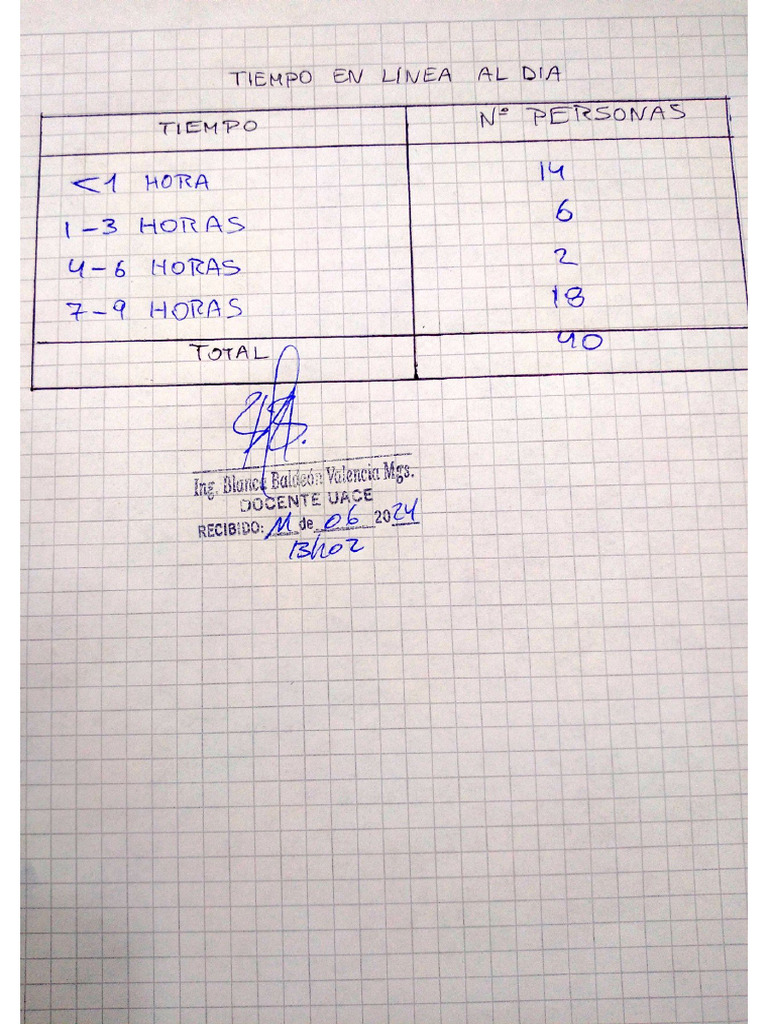 TIEMPO EN LÍNEA AL DIA
TIEMPO Nº PERSONAS
<1 HORA 14
1-3 HORAS 6
4-6 HORAS 2
7-9 HORAS 18
TOTAL 40
Ing. Blanca Baldeón Valencia Mgs.
DOCENTE UACE
RECIBIDO: 11 de 06 2024
13h02